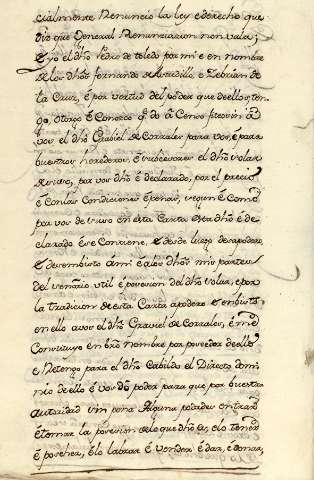 cialmente Renuncio la ley e derecho que
dis que General Renunciacion non vala;
E yo el dho Pedro de toledo por mi e en nombre
de los dhos fernando de Avadillo, e Zebrian de
la Cruz, é por vertud del poder que de ellos ten-
go, otorgo é Conozco
vos el dho Grabiel de Corrales para vos, e para
buestros herederos, é subcesores el dho solar
de uso, por vos dho é declarado, por el precio
é con las Condiciones é penas, segun é Como
por vos de suso en esta Carta esta dho é de-
clarado é se Contiene, é desde luego desapodero
é desembisto a mi é a los dhos mis partes
del Señorio util é posesion del dho solar, e por
la tradicion de esta Carta apodero é enbisto
en ello a vos el dho Graviel de Corrales, é me
Constituyo en bro nombre por poseedor de ello
e Retengo para el dho Cabildo el Directo domi
nio de ello é vos do poder para que por buestra
autoridad sin pena Alguna podades entrar
é tomar la posesion de lo que dho és, é lo tener
é poseher, é lo labrar é vender é dar, é donar,